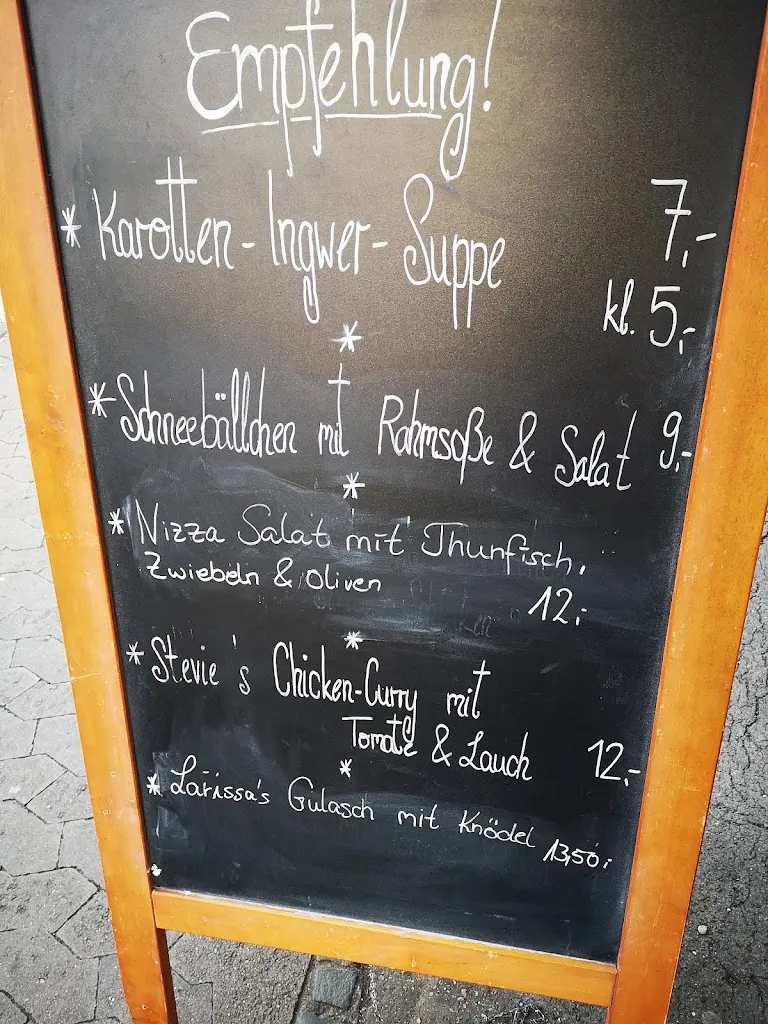 Empfehlung!
* Karotten-Ingwer-Suppe 7,-
kl. 5,-
*
* Schneebällchen mit Rahmsoße & Salat 9,-
*
* Nizza Salat mit Thunfisch,
Zwiebeln & Oliven
12,-
*
* Stevie's Chicken-Curry mit
Tomate & Lauch 12,-
*
* Larissa's Gulasch mit Knödel 13,50,-